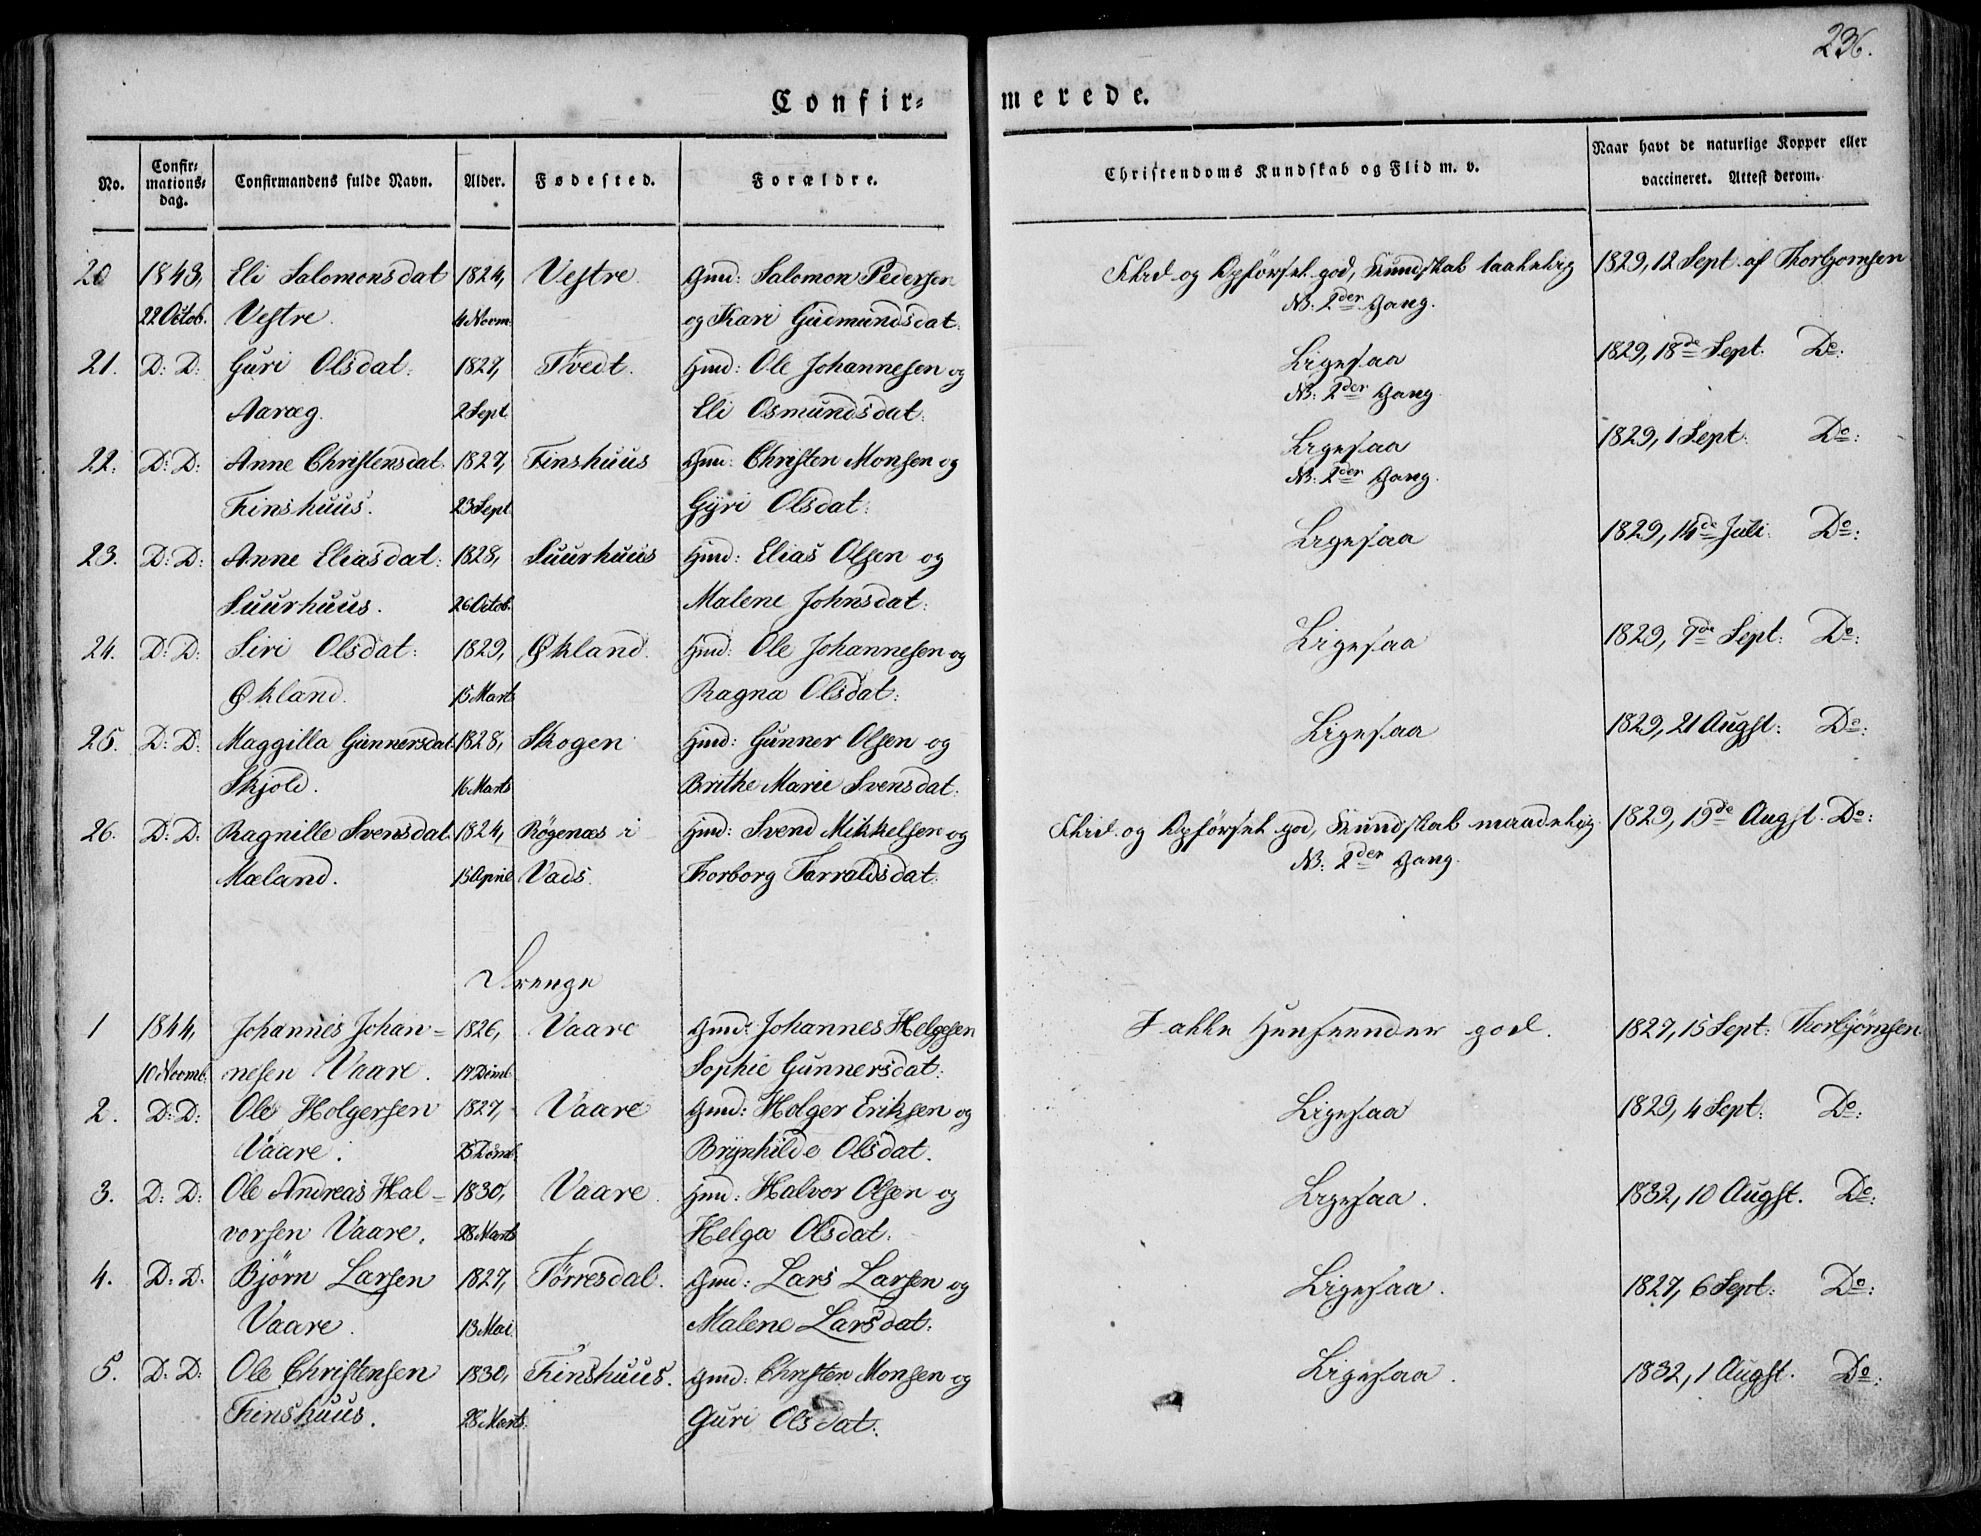 236.
Confir= merede.
No. Confir= mations= dag. Confirmandens fulde Navn. Alder. Fødested. Forældre. Christendoms Kundskab og Flid m. v. Naar havt de naturlige Kopper eller vaccineret. Attest derom.
20 1843, Eli Salomonsdat 1824, Vestre. Gmd: Salomon Pedersen Flid og Opførsel god, Kundskab taalelig 1829, 12 Sept. af Thorbjornsen
22 Octob. Vestre. 4 Novm: og Kari Gudmundsdat: NB: 2der Gang.
21. D: D: Guri Olsdat: 1827, Tvedt. Hmd: Ole Johannesen og Ligesaa 1829, 18de Sept: Do:
Aaræg. 2 Sept. Eli Osmundsdat: NB: 2der Gang.
22. D: D: Anne Christensdat 1827, Finshuus Gmd: Christen Monsen og Ligesaa 1829, 1 Sept: Do:
Finshuus. 23 Sept. Gyri Olsdat: NB: 2der Gang.
23. D: D: Anne Eliasdat: 1828, Suurhuus Hmd: Elias Olsen og Ligesaa 1829, 14de Juli: Do:
Suurhuus. 26 Octob. Malene Johnsdat:
24. D: D: Siri Olsdat: 1829, Økland. Hmd: Ole Johannesen og Ligesaa 1829, 7de Sept: Do:
Økland. 15 Marts Ragna Olsdat:
25. D: D: Maggilla Gunnersdat 1828, Skogen Hmd: Gunner Olsen og Ligesaa 1829, 21 Augst: Do:
Skjold. 16 Marts Brithe Marie Svensdat:
26. D: D: Ragnille Svensdat. 1824, Røgenæs i Hmd: Svend Mikkelsen og Flid og Opførsel god, Kundskab maadelig. 1829, 19de Augst. Do:
Mæland. 15 April Vads. Thorborg Tarraldsdat: NB: 2der Gang.
Drenge
1 1844, Johannes Johan= 1826, Vaare Gmd: Johannes Helgesen I alle Henseender god. 1827, 15 Sept: Thorbjørnsen
10 Novmb. nesen Vaare. 17 Dcmb. Sophie Gunnersdat:
2. D: D: Ole Holgersen 1827, Vaare Gmd: Holger Eriksen og Ligesaa 1829, 4 Sept: Do:
Vaare. Brynhilde Olsdat.
3. D: D: Ole Andreas Hal= 1830, Vaare. Hmd: Halvor Olsen og Ligesaa. 1832, 10 Augst. Do:
vorsen Vaare. 28 Marts Helga Olsdat:
4. D: D. Bjørn Larsen 1827, Tørresdal. Gmd: Lars Larsen og Ligesaa. 1827, 6 Sept: Do:
Vaare. 13 Mai Malene Larsdat:
5. D: D: Ole Christensen 1830, Finshuus. Gmd: Christen Monsen og Ligesaa. 1832, 1 Augst. Do:
Finshuus. 28 Marts. Guri Olsdat: